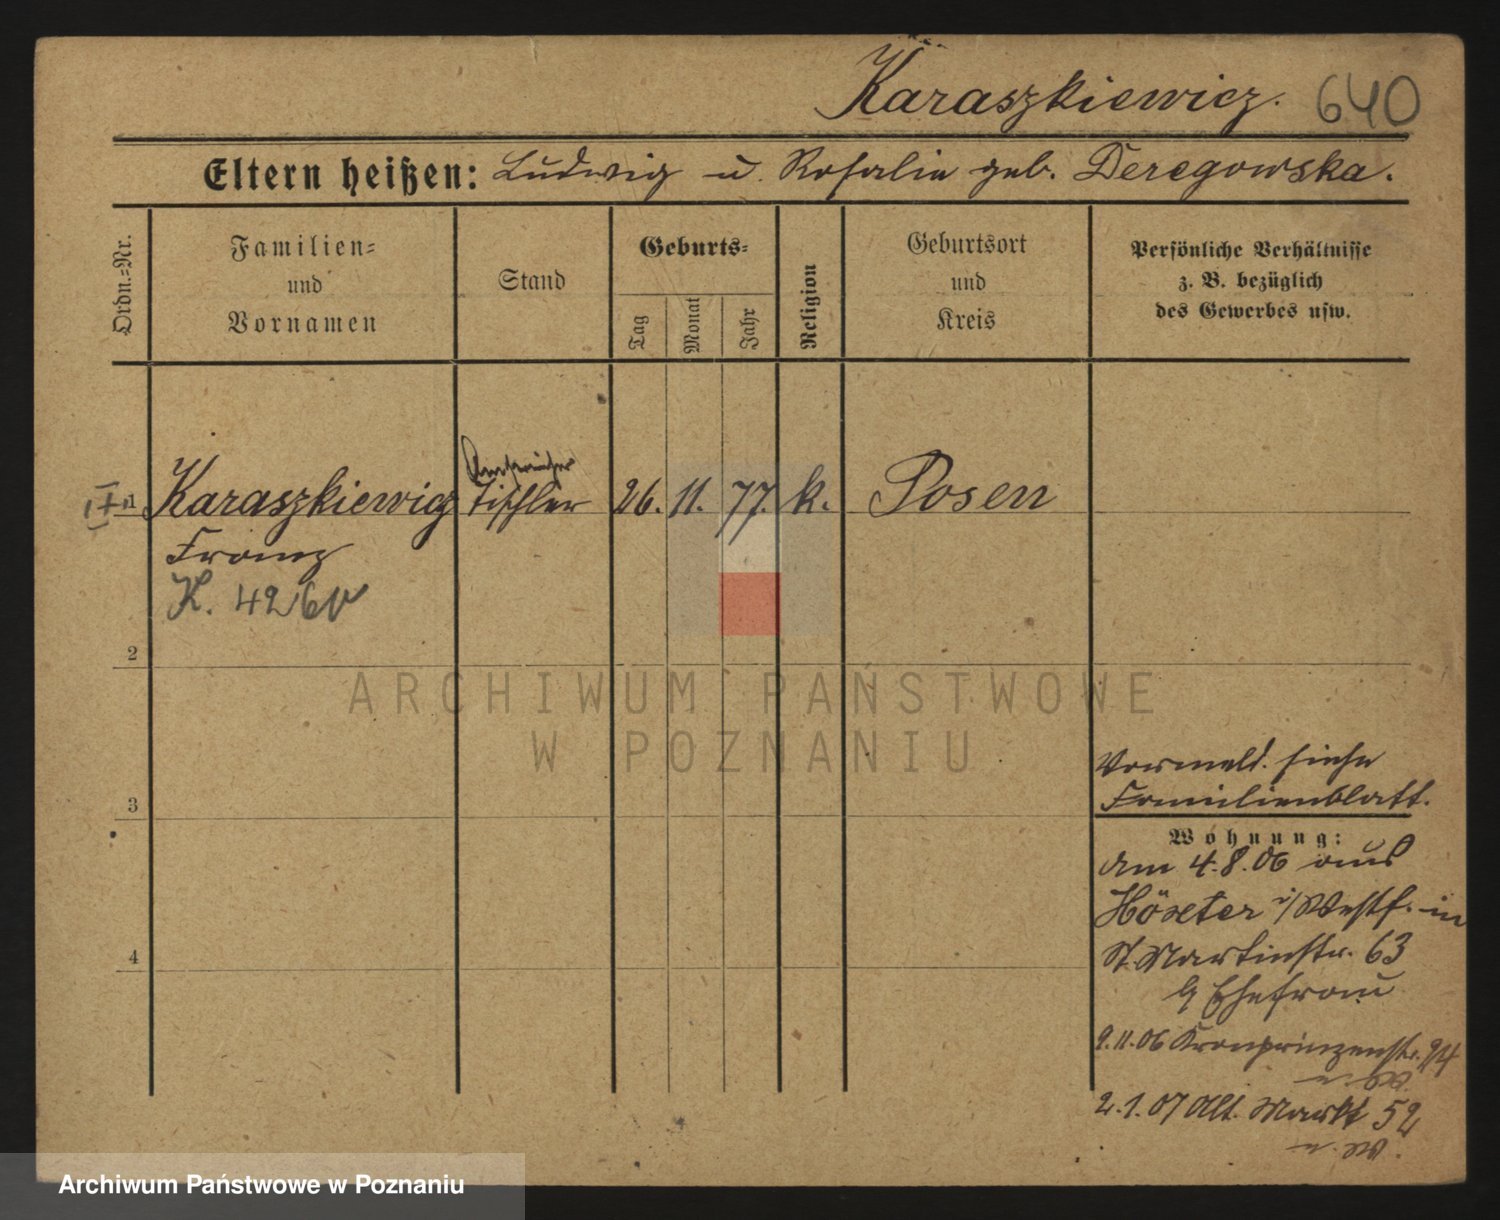 Karaszkiewicz. 640
Eltern heißen: Ludwig u. Rosalie geb. Deregowska.
Ordn.-Nr.
Familien-
und
Vornamen
Stand
Geburts-
Tag
Monat
Jahr
Religion
Geburtsort
und
Kreis
Persönliche Verhältnisse
z. B. bezüglich
des Gewerbes usw.
1 Karaszkiewicz Tischler 26. 11. 77. k. Posen
Franz
K. 426
2
ARCHIWUM PAŃSTWOWE
W POZNANIU
Vormeld. siehe
3 Familienblatt.
Wohnung:
Am 4.8.06 aus
Höxter i/Westf. in
4 St. Martinstr. 63
b/ Ehefrau
9.11.06 Kronprinzenstr. 94
2.1.07 Alt. Markt 52
Archiwum Państwowe w Poznaniu